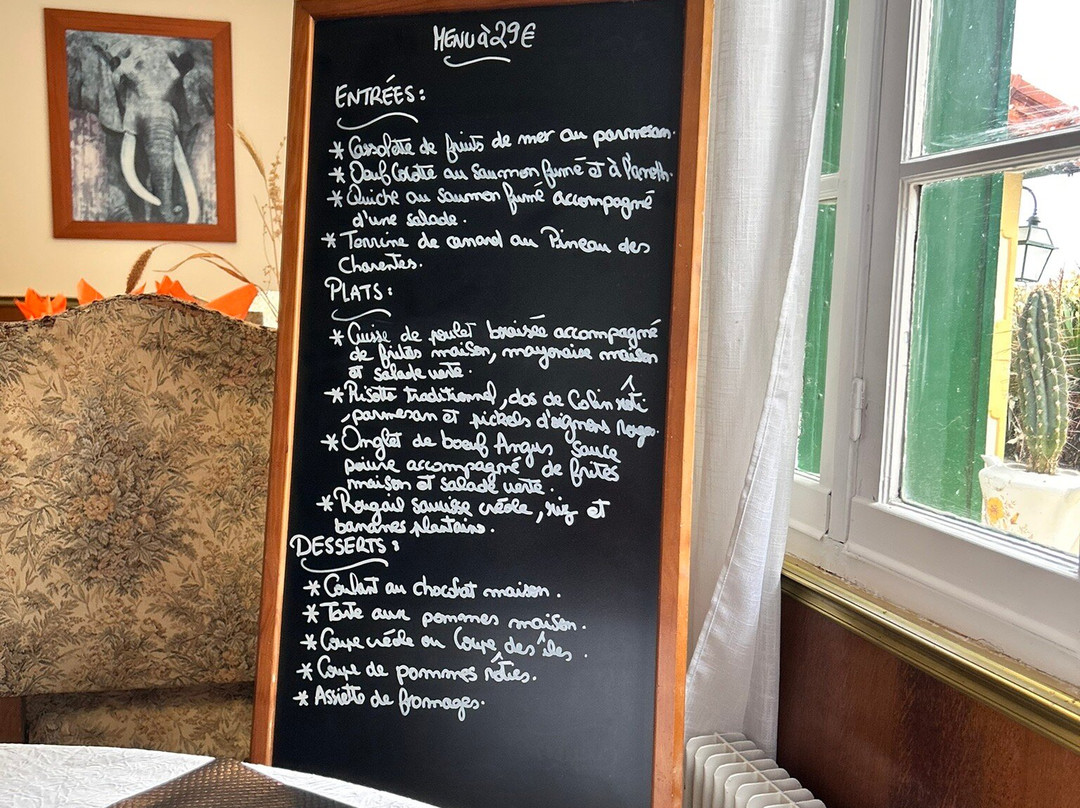 MENU à 29€
ENTRÉES:
* Cassolette de fruits de mer au parmesan.
* Oeuf Cocotte au saumon fumé et à l'aneth.
* Quiche au saumon fumé accompagné
d'une salade.
* Terrine de canard au Pineau des
Charentes.
PLATS:
* Cuisse de poulet braisée accompagné
de frites maison, mayonnaise maison
et salade verte.
* Risotto traditionnel, dos de Colin rôti
parmesan et pickels d'oignons rouges.
* Onglet de boeuf Angus sauce
poivre accompagné de frites
maison et salade verte.
* Rougail saucisse créole, riz et
bananes plantain.
DESSERTS:
* Coulant au chocolat maison.
* Tarte aux pommes maison.
* Coupe créole ou Coupe des îles.
* Coupe de pommes rôties.
* Assiette de fromages.